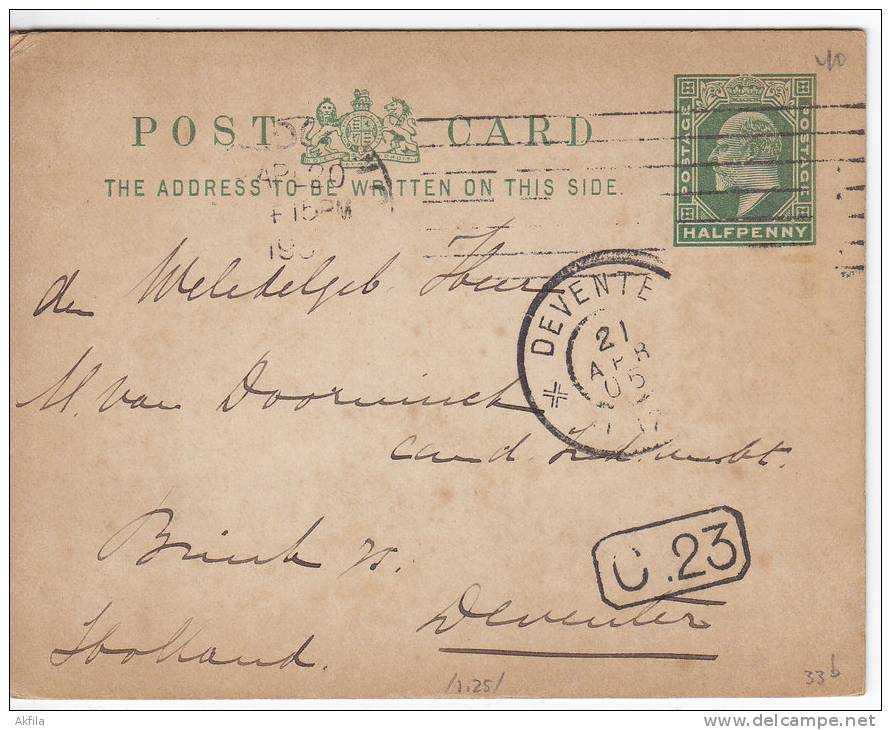 40
POST CARD
THE ADDRESS TO BE WRITTEN ON THIS SIDE.
POSTAGE
POSTAGE
HALFPENNY
APR 20
15PM
190
DEVENTE
21
APR
05
den Weledelgeb. Heer
M. van Doorninck
cand.
Brink
Deventer
Holland.
C.23
/1.25/
33b
Akfila
delcampe.net